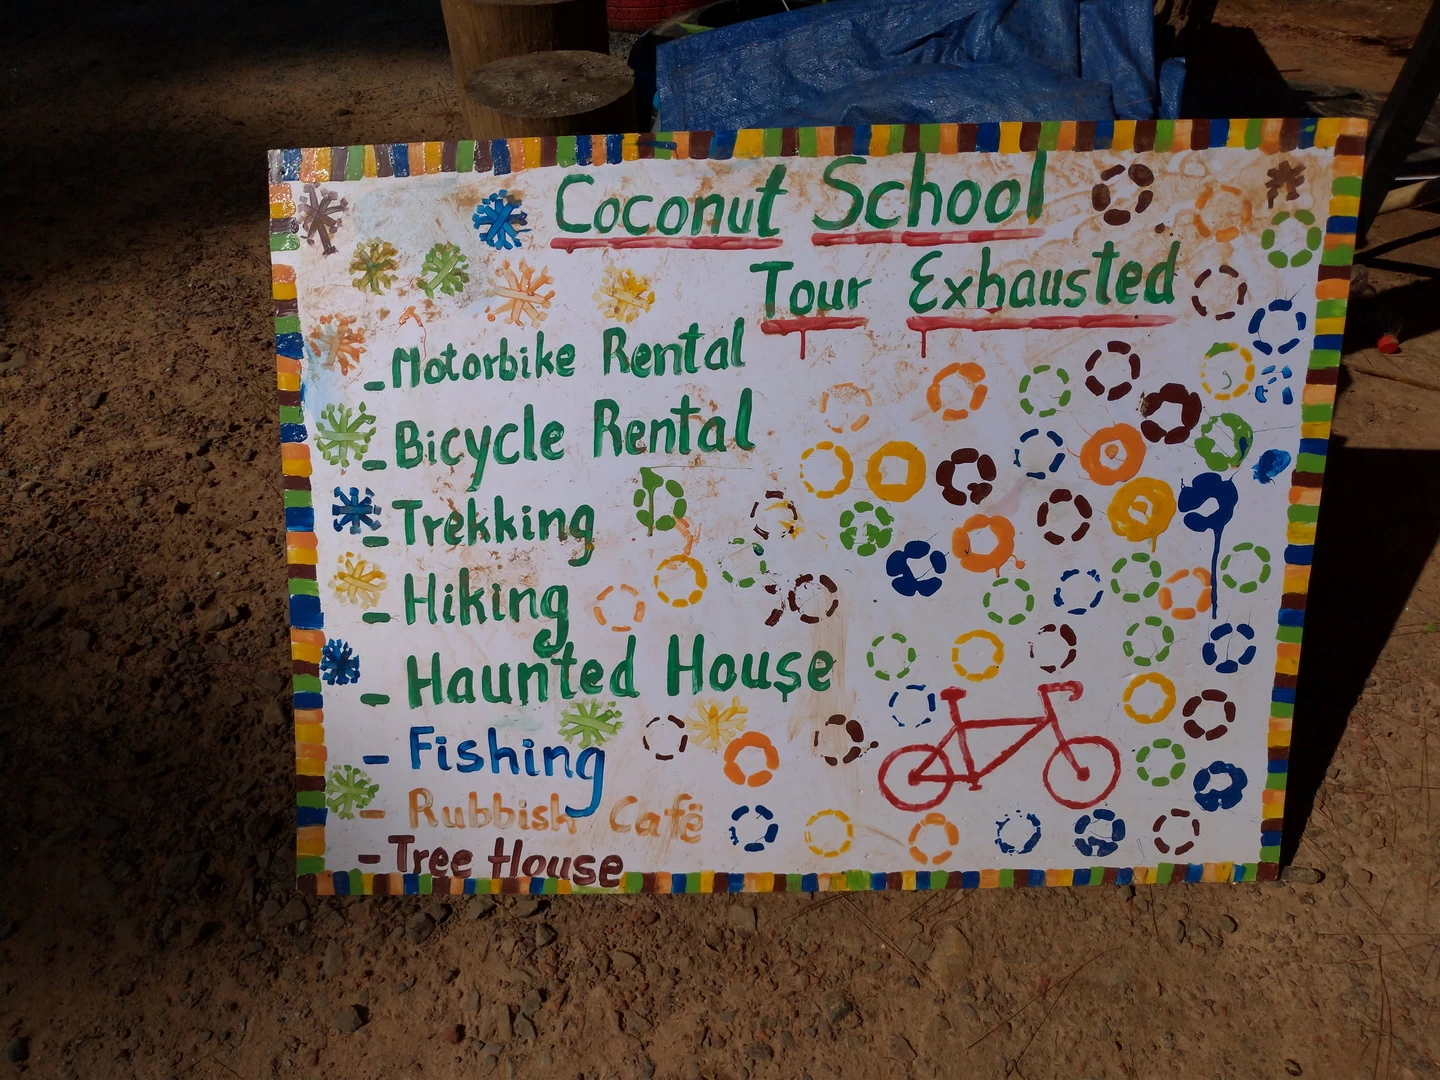 Coconut School
Tour Exhausted
- Motorbike Rental
- Bicycle Rental
- Trekking
- Hiking
- Haunted House
- Fishing
- Rubbish Cafë
- Tree House